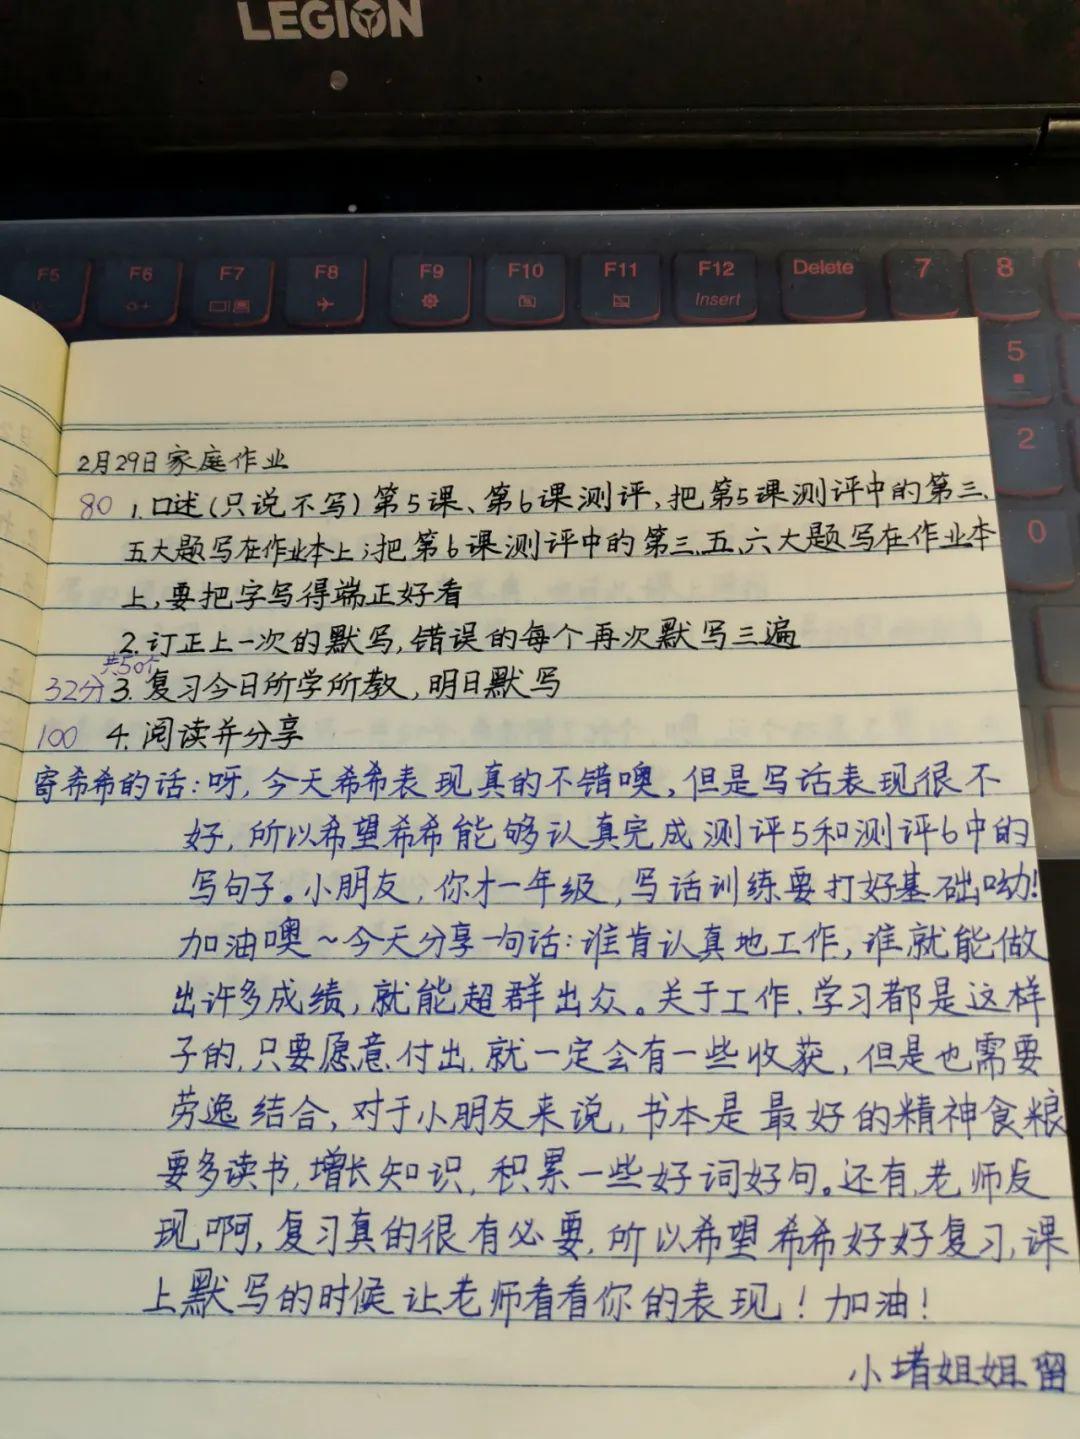 LEGION
F5 F6 F7 F8 F9 F10 F11 F12 Delete 7 8
Insert
5
2
0
2月29日家庭作业
80 1.口述(只说不写)第5课、第6课测评,把第5课测评中的第三、
五大题写在作业本上;把第6课测评中的第三、五、六大题写在作业本
上,要把字写得端正好看
2.订正上一次的默写,错误的每个再次默写三遍
共50个
32分 3.复习今日所学所教,明日默写
100 4.阅读并分享
寄希希的话:呀,今天希希表现真的不错噢,但是写话表现很不
好,所以希望希希能够认真完成测评5和测评6中的
写句子。小朋友,你才一年级,写话训练要打好基础呦!
加油噢~今天分享一句话:谁肯认真地工作,谁就能做
出许多成绩,就能超群出众。关于工作、学习都是这样
子的,只要愿意付出,就一定会有一些收获,但是也需要
劳逸结合,对于小朋友来说,书本是最好的精神食粮
要多读书,增长知识,积累一些好词好句。还有,老师发
现啊,复习真的很有必要,所以希望希希好好复习,课
上默写的时候让老师看看你的表现!加油!
小堵姐姐留